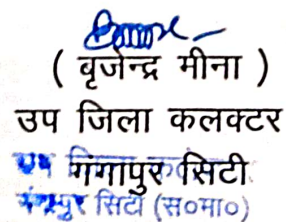 ( बृजेन्द्र मीना )
उप जिला कलक्टर
गंगापुर सिटी
सिटी (स०मा०)